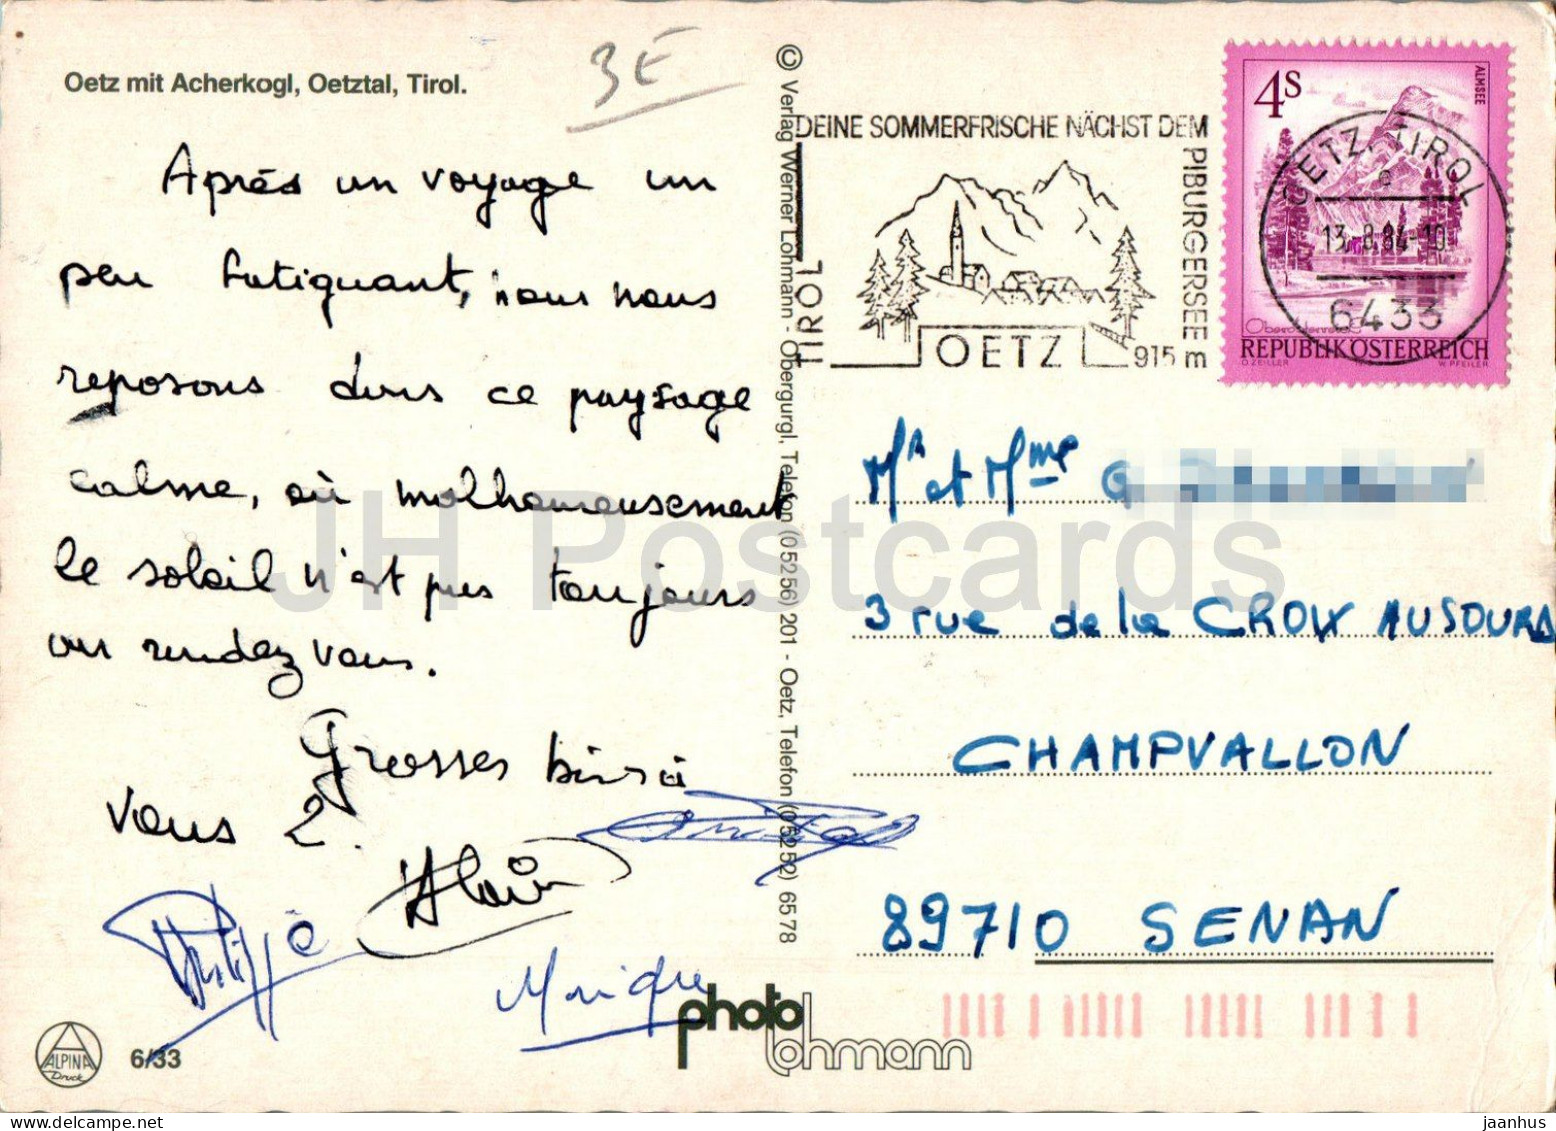 Oetz mit Acherkogl, Oetztal, Tirol.
3 E
Après un voyage un
peu fatiguant, nous nous
reposons dans ce paysage
calme, où malheureusement
le soleil n'est pas toujours
au rendez vous.
Grosses bises à
vous 2.
Alain
Philippe
Monique
ALPINA
Druck
6/33
photo
Lohmann
© Verlag Werner Lohmann - Obergurgl, Telefon (0 52 56) 201 - Oetz, Telefon (0 52 52) 65 78
DEINE SOMMERFRISCHE NÄCHST DEM
PIBURGERSEE
TIROL
OETZ
915 m
4S
ALMSEE
OETZ, TIROL
e
13.-8.84-10
6433
Oberösterreich
REPUBLIK ÖSTERREICH
O. ZEILLER
W. PFEILER
Mr et Mme G
3 rue de la CROIX AUSOURD
CHAMPVALLON
89710 SENAN
JH Postcards
jaanhus